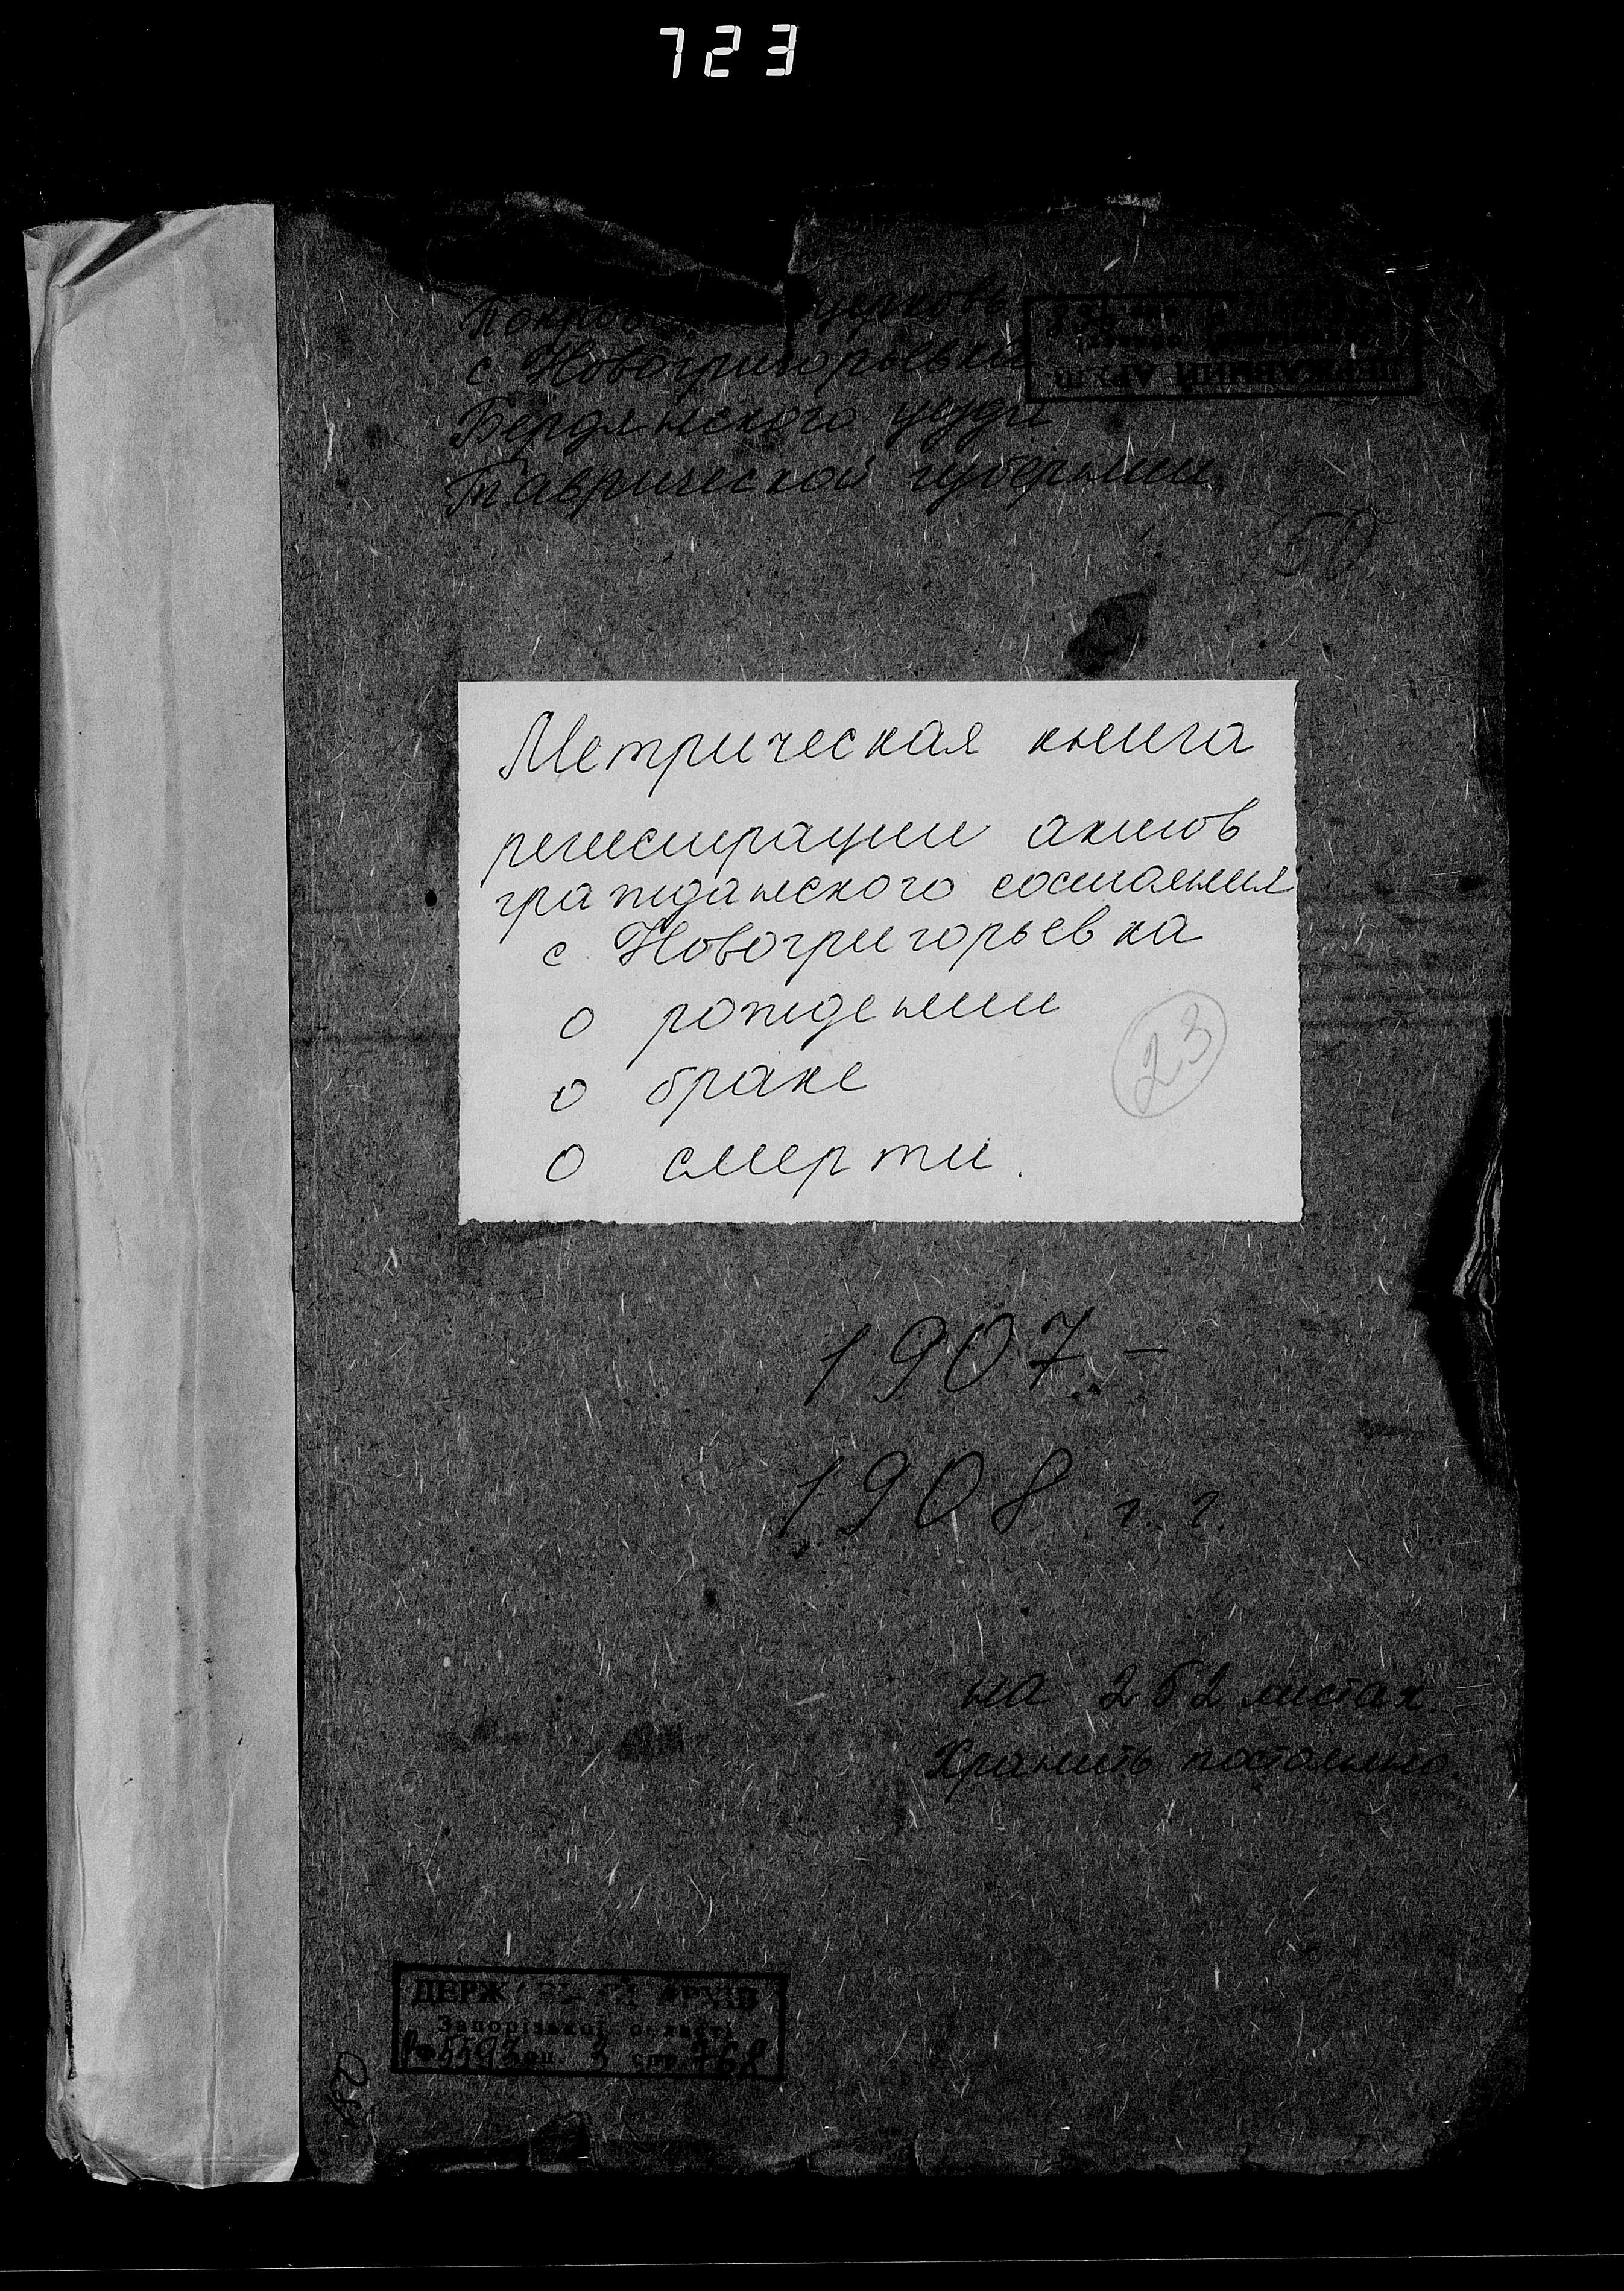 723
церковь
с Новогригорьевка
Бердянского уезда
Таврической губернии
50
Метрическая книга
регистрации актов
гражданского состояния
с. Новогригорьевка
о рождении
о браке
о смерти.
23
1907 –
1908 г. г.
на 252 листах
Хранить постоянно.
АРХІВ
Запорізької області
5593 оп. 3 спр. 768